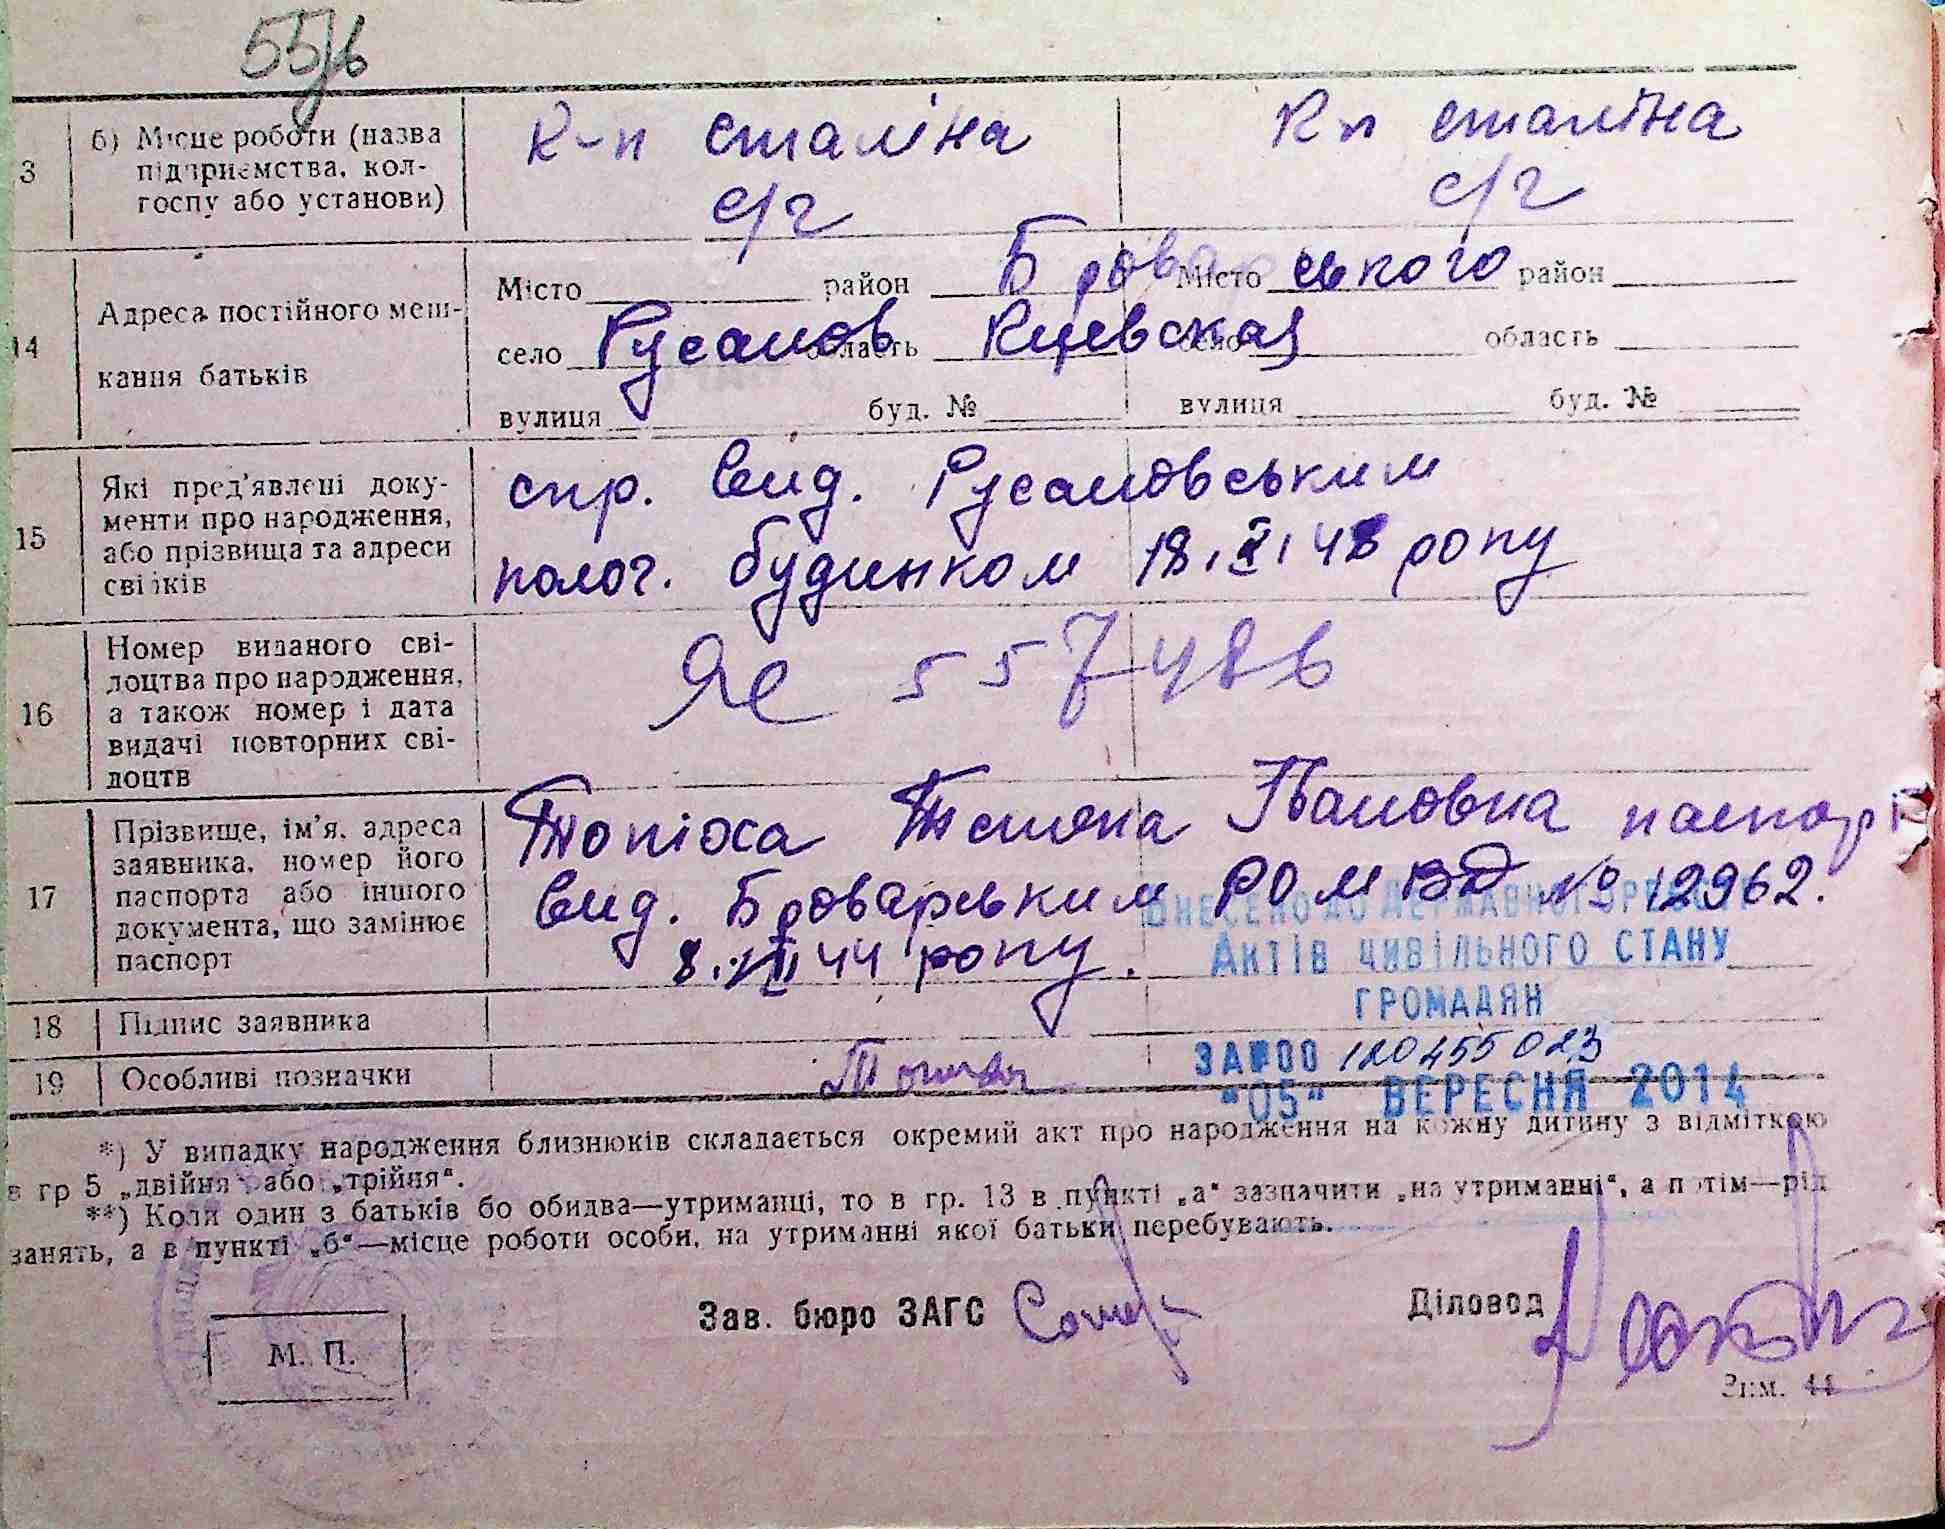 55/в
3 б) Місце роботи (назва підприємства, кол-госпу або установи)
к-п сталіна с/г
к-п сталіна с/г
14 Адреса постійного меш-
кання батьків
Місто район Броварського Місто район
село Русанов область Киевская село область
вулиця буд. № вулиця буд. №
15 Які пред'явлені доку-
менти про народження,
або прізвища та адреси
свідків
спр. вид. Русановським
полог. будинком 18. 48 року
16 Номер виданого сві-
доцтва про народження,
а також номер і дата
видачі повторних сві-
доцтв
ЯЄ 557486
17 Прізвище, ім'я, адреса
заявника, номер його
паспорта або іншого
документа, що замінює
паспорт
Топіха Тетяна Івановна паспорт
вид. Броварським РО МВД № 12962.
8. 44 року.
ВНЕСЕНО ДО ДЕРЖАВНОГО РЕЄСТРУ
АКТІВ ЦИВІЛЬНОГО СТАНУ
ГРОМАДЯН
18 Підпис заявника
19 Особливі позначки
ЗА №00 120455023
"05" ВЕРЕСНЯ 2014
*) У випадку народження близнюків складається окремий акт про народження на кожну дитину з відміткою
в гр 5 „двійня" або „трійня".
**) Коли один з батьків бо обидва—утриманці, то в гр. 13 в пункті „а" зазначити „на утриманні", а потім—рід
занять, а в пункті „б"—місце роботи особи, на утриманні якої батьки перебувають.
Зав. бюро ЗАГС
Діловод
М. П.
Зам. 44